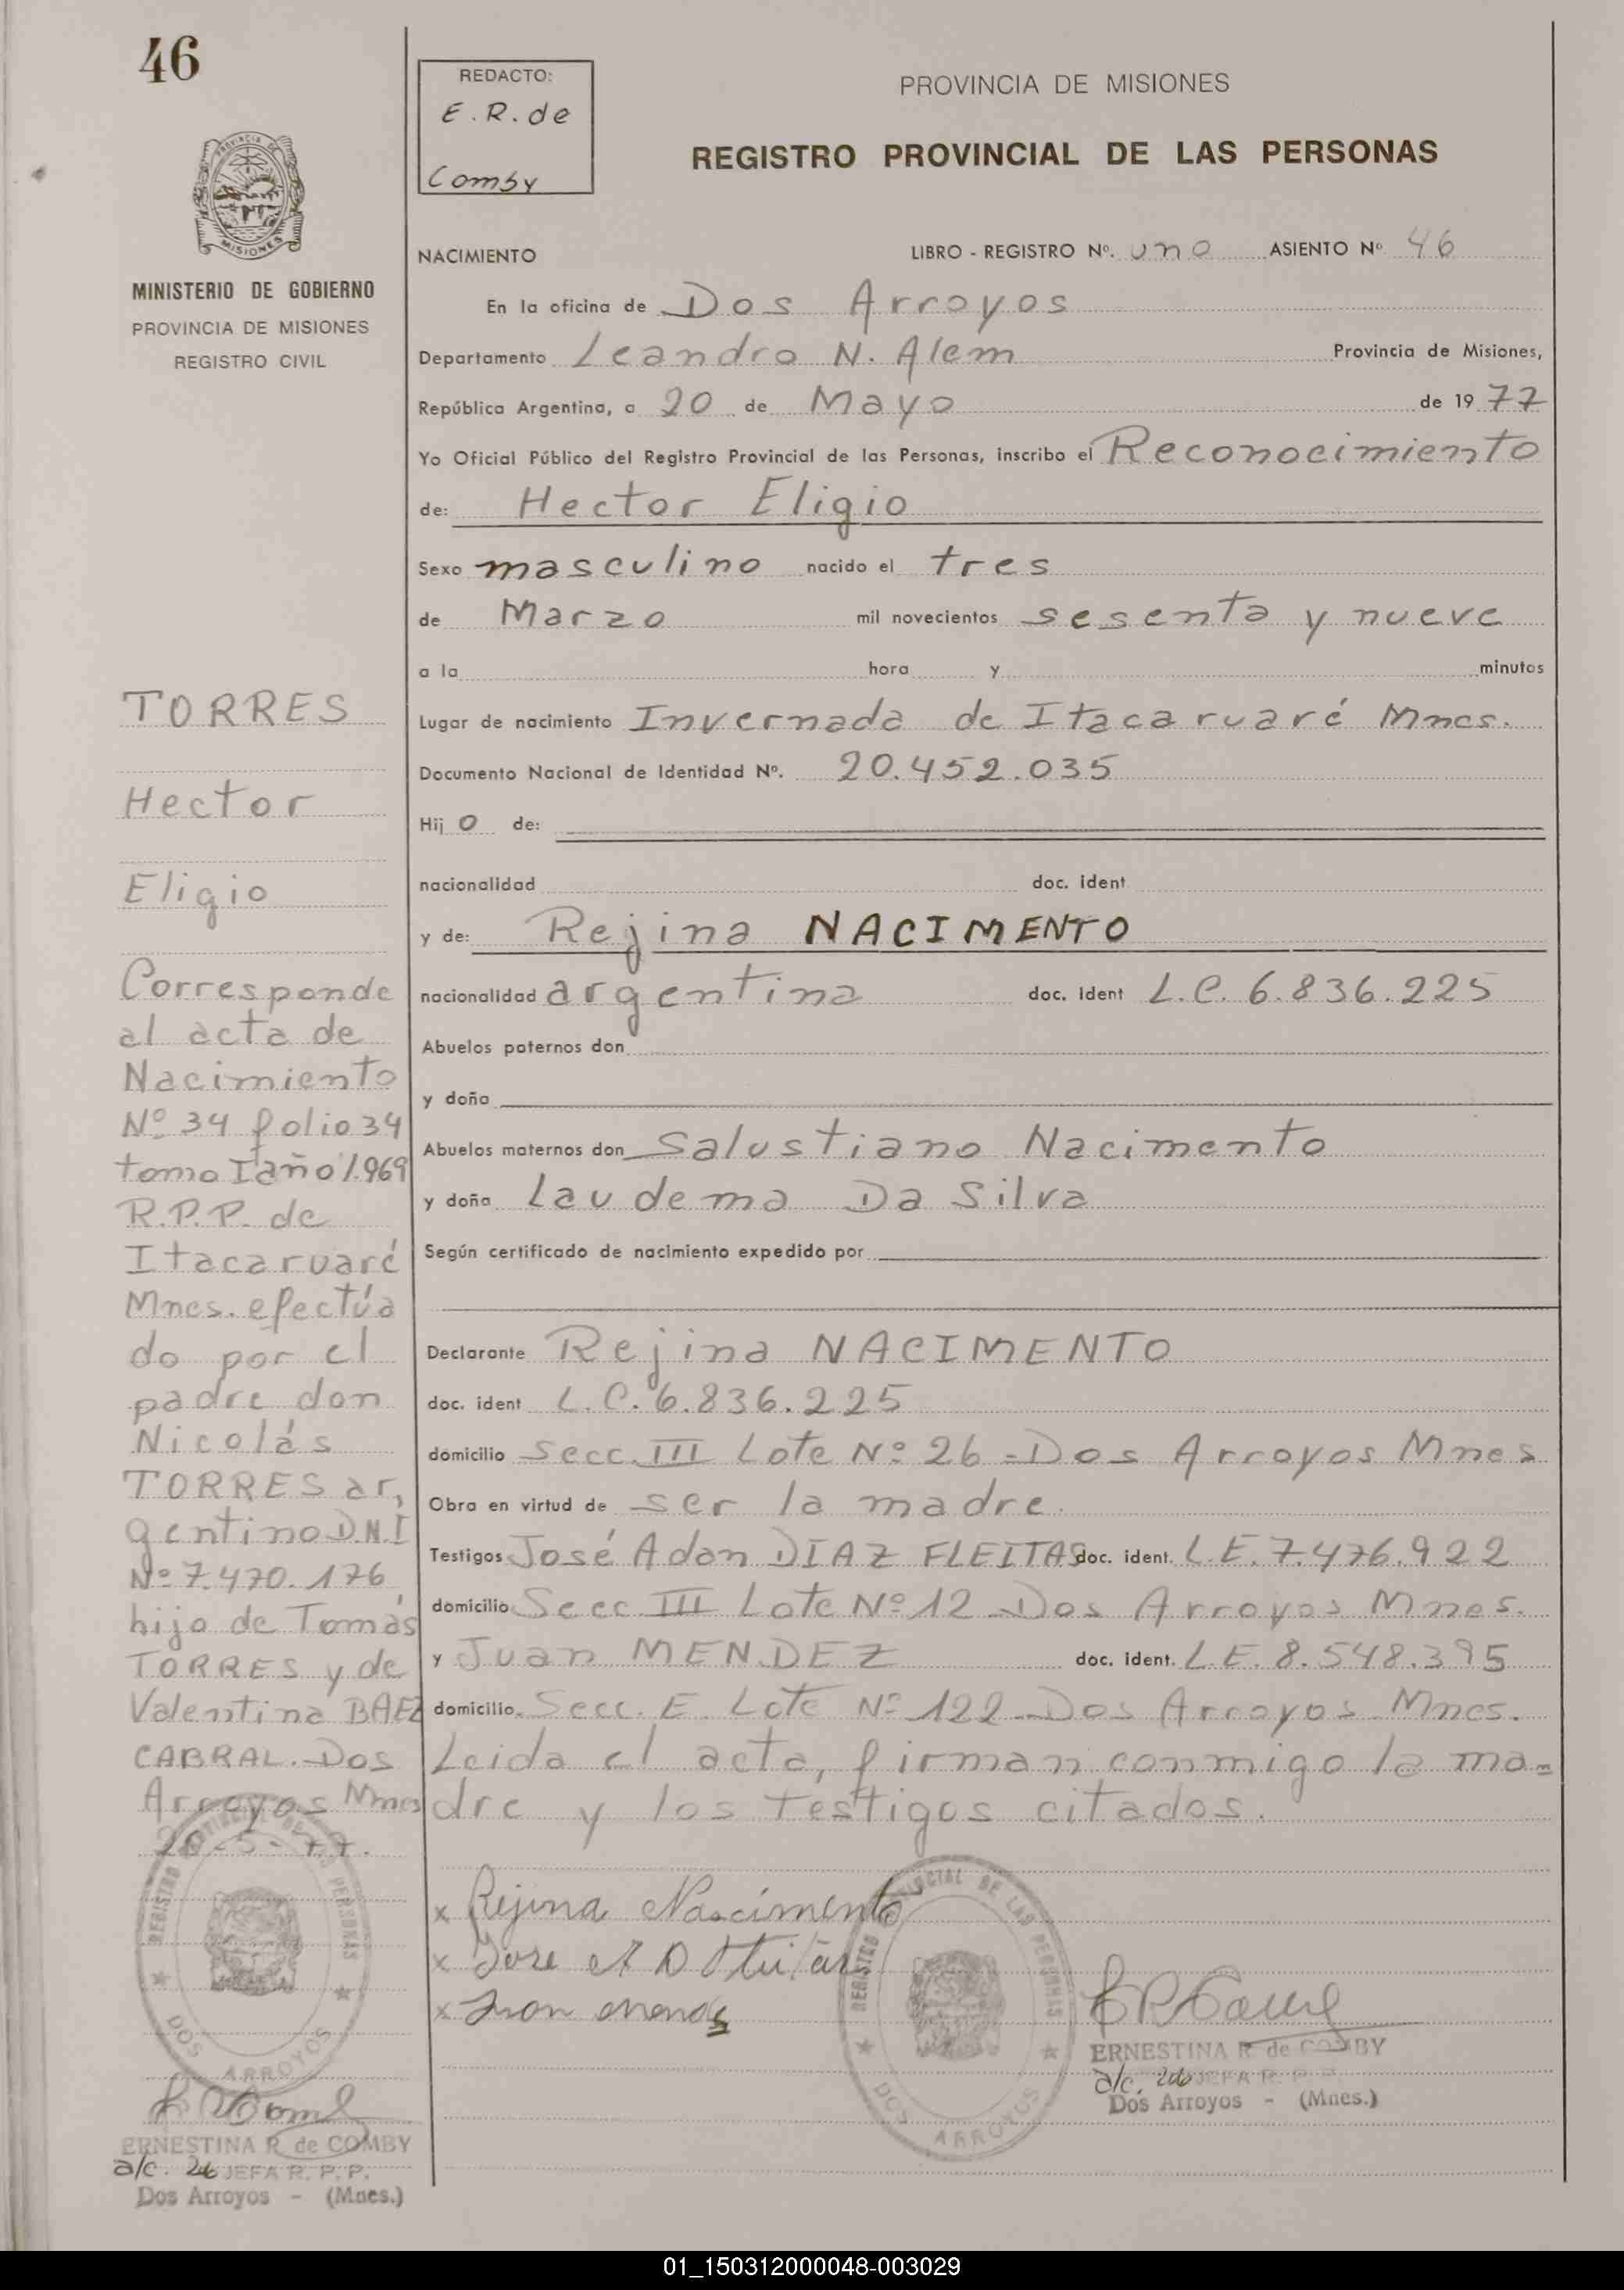 46
REDACTO:
E. R. de
Comby
PROVINCIA DE MISIONES
REGISTRO PROVINCIAL DE LAS PERSONAS
PROVINCIA DE
MISIONES
MINISTERIO DE GOBIERNO
PROVINCIA DE MISIONES
REGISTRO CIVIL
NACIMIENTO LIBRO - REGISTRO Nº. uno ASIENTO Nº 46
En la oficina de Dos Arroyos
Departamento Leandro N. Alem Provincia de Misiones,
República Argentina, a 20 de Mayo de 19 77
Yo Oficial Público del Registro Provincial de las Personas, inscribo el Reconocimiento
de: Hector Eligio
Sexo masculino nacido el tres
de Marzo mil novecientos sesenta y nueve
a la hora y minutos
Lugar de nacimiento Invernada de Itacaruaré Mnes.
Documento Nacional de Identidad Nº. 20.452.035
Hij o de:
nacionalidad doc. ident
y de: Rejina NACIMENTO
nacionalidad argentina doc. ident L.C. 6.836.225
Abuelos paternos don
y doña
Abuelos maternos don Salustiano Nacimento
y doña Laudema Da Silva
Según certificado de nacimiento expedido por
Declarante Rejina NACIMENTO
doc. ident L.C. 6.836.225
domicilio Secc. III Lote Nº 26 - Dos Arroyos Mnes
Obra en virtud de ser la madre.
Testigos José Adan DIAZ FLEITAS doc. ident. L.E. 7.476.922
domicilio Secc III Lote Nº 12 Dos Arroyos Mnes.
y Juan MENDEZ doc. ident. L.E. 8.548.395
domicilio. Secc. E. Lote Nº 122 - Dos Arroyos Mnes.
Leida el acta, firman conmigo la ma=
dre y los testigos citados.
TORRES
Hector
Eligio
Corresponde
al acta de
Nacimiento
Nº 34 folio 34
tomo I año 1.969
R.P.P. de
Itacaruaré
Mnes. efectúa
do por el
padre don
Nicolás
TORRES ar,
gentino D.N.I
Nº 7.470.176,
hijo de Tomás
TORRES y de
Valentina BAEZ
CABRAL. Dos
Arroyos Mnes
20-5-77.
REGISTRO PROVINCIAL DE LAS PERSONAS
DOS ARROYOS
ERNESTINA R. de COMBY
a/c. JEFA R. P. P.
Dos Arroyos - (Mnes.)
x Rejina Nascimento
x Jose A D
x Juan
REGISTRO PROVINCIAL DE LAS PERSONAS
DOS ARROYOS
ERNESTINA R. de COMBY
a/c. JEFA R. P. P.
Dos Arroyos - (Mnes.)
01_150312000048-003029